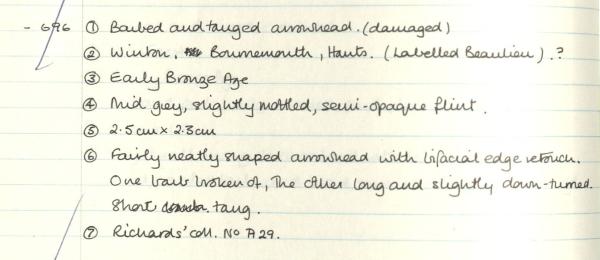 - 696 ① Barbed and tanged arrowhead. (damaged)
② Winton, Bournemouth, Hants. (Labelled Beaulieu).?
③ Early Bronze Age
④ Mid grey, slightly mottled, semi-opaque flint.
⑤ 2.5cm x 2.3cm
⑥ Fairly neatly shaped arrowhead with bifacial edge retouch.
One barb broken of, The other long and slightly down-turned.
Short tang.
⑦ Richards' coll. No A29.